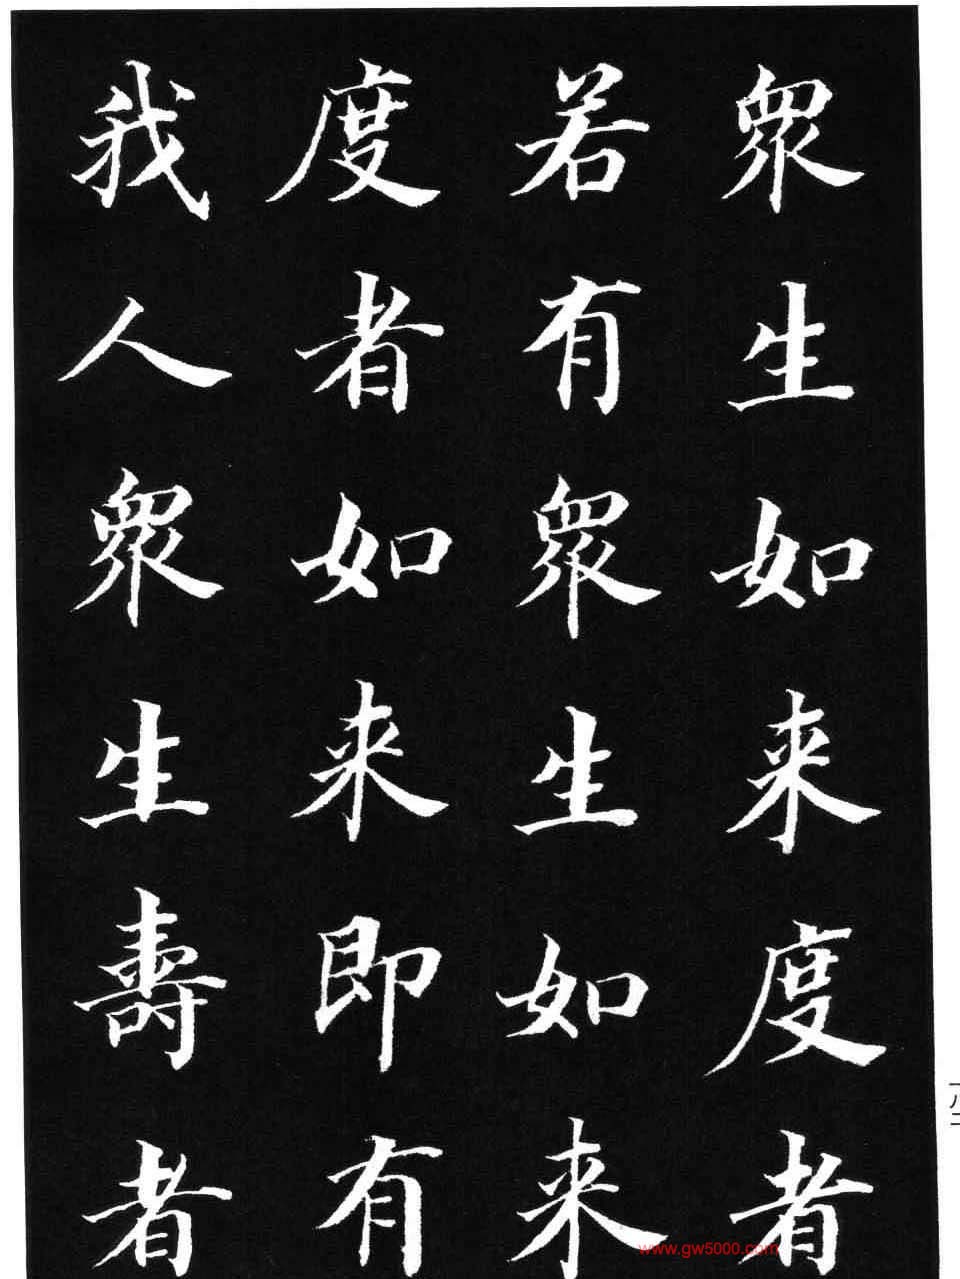 眾生如来度者
若有眾生如来
度者如来即有
我人眾生壽者
一八二
www.gw5000.com